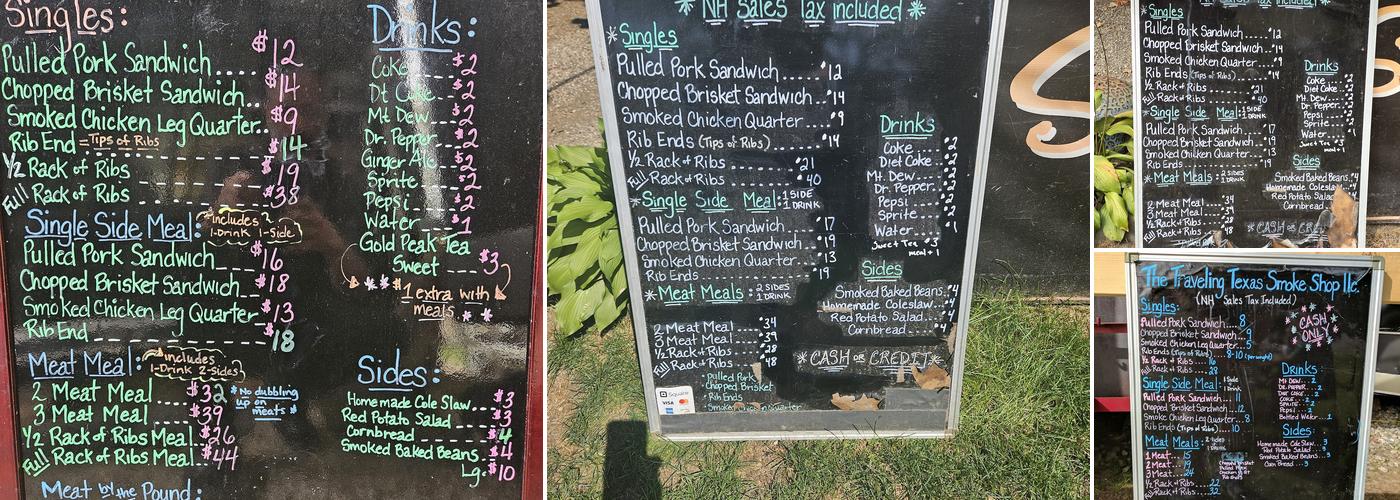 Singles:
Pulled Pork Sandwich $12
Chopped Brisket Sandwich $14
Smoked Chicken Leg Quarter $9
Rib End = Tips of Ribs $14
1/2 Rack of Ribs $19
Full Rack of Ribs $38
Single Side Meal: includes 1-Drink 1-Side
Pulled Pork Sandwich $16
Chopped Brisket Sandwich $18
Smoked Chicken Leg Quarter $13
Rib End $18
Meat Meal: includes 1-Drink 2-Sides
2 Meat Meal $32
3 Meat Meal $39
*No dubbling up on meats*
1/2 Rack of Ribs Meal $26
Full Rack of Ribs Meal $44
Meat by the Pound:
Drinks:
Coke $2
Dt Coke $2
Mt Dew $2
Dr. Pepper $2
Ginger Ale $2
Sprite $2
Pepsi $2
Water $1
Gold Peak Tea
Sweet $3
$1 extra with meals
Sides:
Homemade Cole Slaw $3
Red Potato Salad $3
Cornbread $4
Smoked Baked Beans $4
Lg. $10
* NH Sales Tax included *
*Singles
Pulled Pork Sandwich $12
Chopped Brisket Sandwich $14
Smoked Chicken Quarter $9
Rib Ends (Tips of Ribs) $14
1/2 Rack of Ribs $21
Full Rack of Ribs $40
*Single Side Meal: 1 SIDE 1 DRINK
Pulled Pork Sandwich $17
Chopped Brisket Sandwich $19
Smoked Chicken Quarter $13
Rib Ends $19
*Meat Meals: 2 SIDES 1 DRINK
2 Meat Meal $34
3 Meat Meal $39
1/2 Rack of Ribs $28
Full Rack of Ribs $48
• Pulled Pork
• Chopped Brisket
• Rib Ends
• Smoked Chicken Quarter
Square
VISA
Drinks
Coke $2
Diet Coke $2
Mt. Dew $2
Dr. Pepper $2
Pepsi $2
Sprite $2
Water $1
Sweet Tea $3
meal + 1
Sides
Smoked Baked Beans $4
Homemade Coleslaw $4
Red Potato Salad $4
Cornbread $4
*CASH or CREDIT*
S
*Singles
Pulled Pork Sandwich $12
Chopped Brisket Sandwich $14
Smoked Chicken Quarter $9
Rib Ends (Tips of Ribs) $14
1/2 Rack of Ribs $21
Full Rack of Ribs $40
*Single Side Meal: 1 SIDE 1 DRINK
Pulled Pork Sandwich $17
Chopped Brisket Sandwich $19
Smoked Chicken Quarter $13
Rib Ends $19
*Meat Meals: 2 SIDES 1 DRINK
2 Meat Meal $34
3 Meat Meal $39
1/2 Rack of Ribs $28
Full Rack of Ribs $48
Drinks
Coke $2
Diet Coke $2
Mt. Dew $2
Dr. Pepper $2
Pepsi $2
Sprite $2
Water $1
Sweet Tea $3
meal + 1
Sides
Smoked Baked Beans $4
Homemade Coleslaw $4
Red Potato Salad
Cornbread
*CASH or CRED
The Traveling Texas Smoke Shop llc.
(NH Sales Tax Included)
Singles:
Pulled Pork Sandwich 8
Chopped Brisket Sandwich 9
Smoked Chicken Leg Quarter 5
Rib Ends (Tips of Ribs) 8-10 (per weight)
1/2 Rack of Ribs 16
Full Rack of Ribs
Single Side Meal: 1 Side 1 Drink
Pulled Pork Sandwich 11
Chopped Brisket Sandwich 12
Smoked Chicken Leg Quarter 8
Rib Ends (Tips of Ribs) 10
Meat Meals: 2 Sides
1 Meat 15
2 Meat 19
3 Meat 24
1/2 Rack of Ribs 22
Full Rack of Ribs 32
CASH ONLY
Drinks:
Mt Dew 2
Dr. Pepper 2
Diet Coke 2
Coke 2
Sprite 2
Pepsi 2
Bottled Water 1
Sides:
Homemade Cole Slaw 3
Red Potato Salad 3
Smoked Baked Beans 3
Corn Bread 3